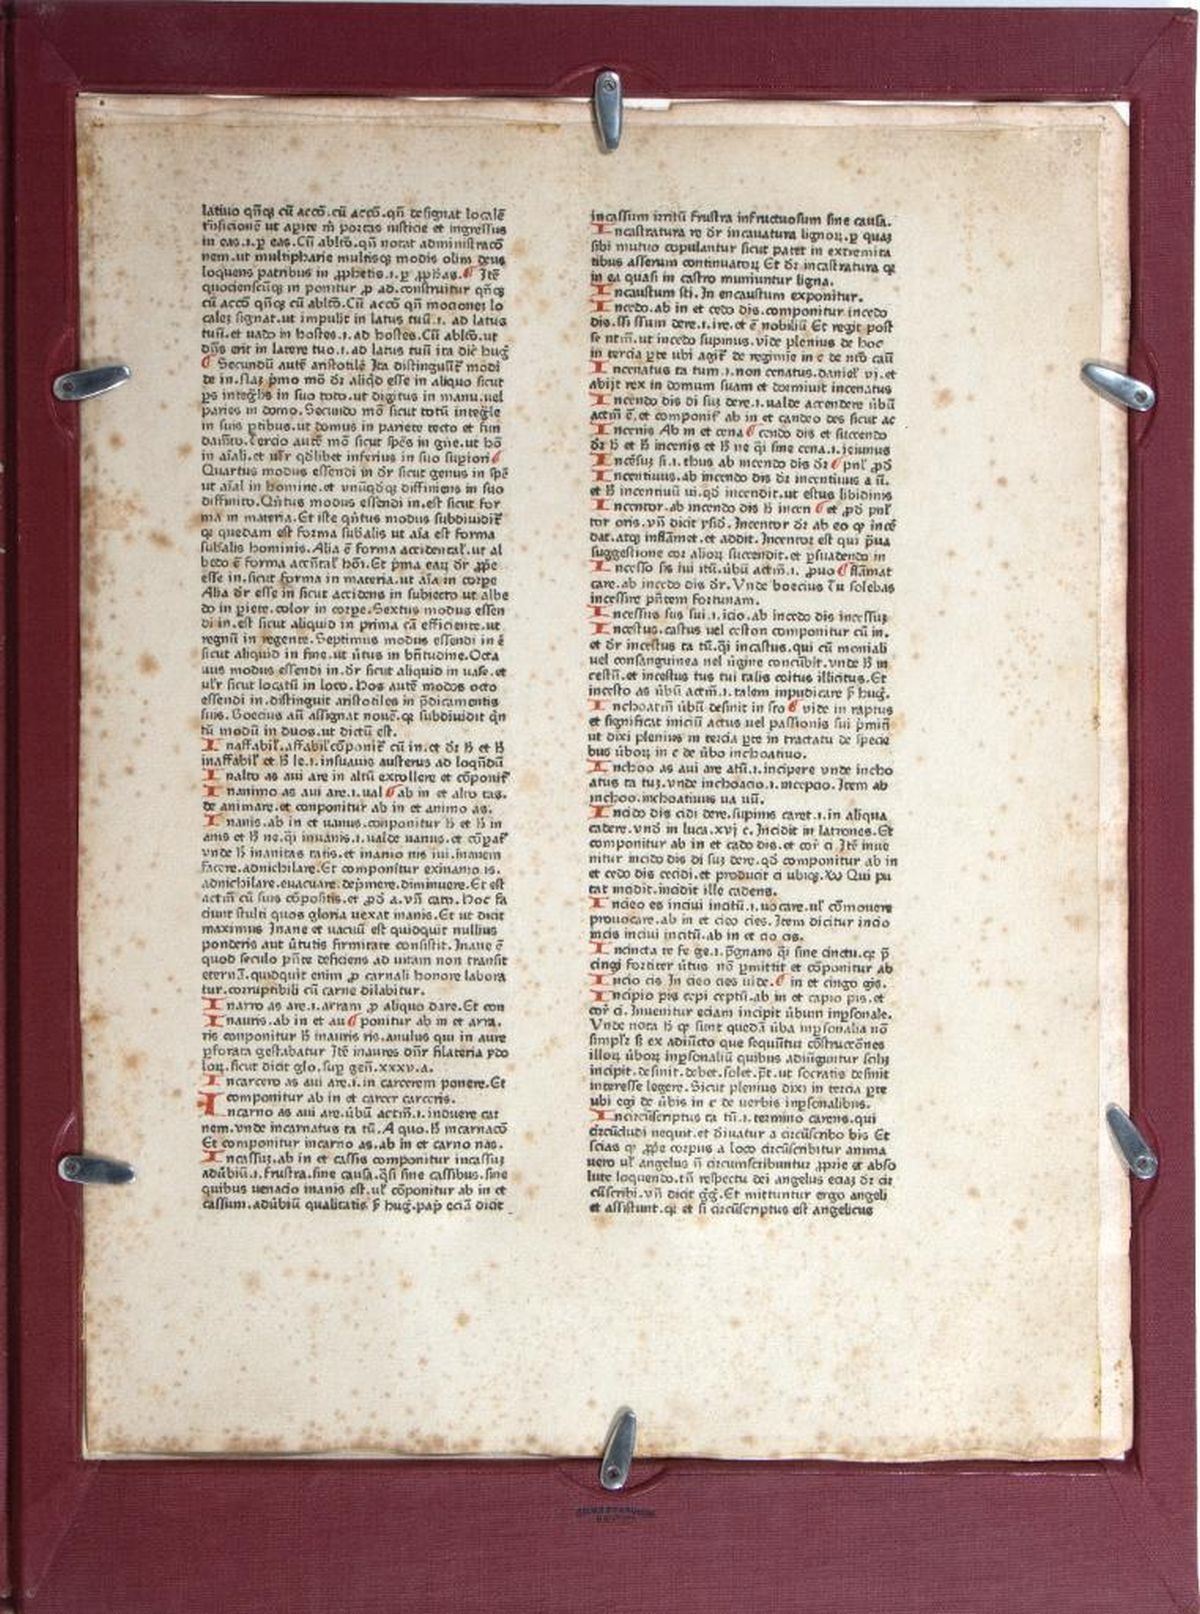 latiuo qñq; cū accō. cū accō. qñ designat localē
in eas .i. ꝑ eas. Cū ablcō. qñ notat administracō
nem. ut multipharie multisq; modis olim deus
loquens patribus in ꝓphetis .i. ꝑ ꝓphas. Itē
quociensciīq; in ponitur ꝓ ad. construitur qñq;
cū accō qñq; cū ablcō. Cū accō qñ mocionez lo
calez signat. ut impulit in latus tuū .i. ad latus
tuū. et uado in hostes .i. ad hostes. Cū ablcō. ut
dñs erit in latere tuo .i. ad latus tuū ita dic̄ hug̉
Secundū autē aristotilē Ita distinguūt̉ modi
de in. Naz p̄mo mō dr̄ aliqd esse in aliquo sicut
ps integlis in suo toto. ut digitus in manu. uel
paries in domo. Secundo mō sicut totū integle
in suis ꝑtibus. ut domus in pariete tecto et fun
damto. Tercio autē mō sicut spēs in gn̄e. ut hō
in aīali. et ulr̄ qdlibet inferius in suo supiori
Quartus modus essendi in dr̄ sicut genus in spē
ut aīal in homine. et unūqdq; diffiniens in suo
diffinito. Qn̄tus modus essendi in. est sicut for
ma in materia. Et iste qn̄tus modus subdiuidit̉
qꝫ quedam est forma sub̄alis ut aīa est forma
sub̄alis hominis. Alia ē forma accidental̉. ut al
bedo ē forma accn̄tal̉ hōi. Et p̄ma eaꝝ dr̄ ꝓpe
esse in. sicut forma in materia. ut aīa in corpe
Alia dr̄ esse in sicut accidens in subiecto ut albe
do in piete. color in corpe. Sextus modus essen
di in. est sicut aliquid in prima cā efficiente. ut
regnū in regente. Septimus modus essendi in ē
sicut aliquid in fine. ut ūtus in bn̄titudine. Octa
uus modus essendi in. dr̄ sicut aliquid in uase. et
ulr̄ sicut locatū in loco. Hos autē modos octo
essendi in. distinguit aristotiles in p̄dicamentis
suis. Boecius aū assignat nouē. qꝫ subdiuidit qn̄
tū modū in duos. ut dictū est.
Inaffabil̉. affabil̉ cōponit̉ cū in. et dr̄ ħ et ħ
inaffabil̉ et ħ le .i. insuauis austerus ad loqn̄dū
Inalto as aui are in altū extollere et cōponit̉
Inanimo as aui are .i. ual ab in et alto tas.
de animare. et conponitur ab in et animo as.
Inanis. ab in et uanus. conponitur ħ et ħ in
anis et ħ ne. qi inuanis .i. ualde uanus. et cōpat̉
vnde ħ inanitas tatis. et inanio nis iui. inanem
facere. adnichilare. Et componitur exinanio is.
adnichilare. euacuare. dep̄mere. diminuere. Et est
actm̄ cū suis cōpositis. et ꝓd a. vn̄ cato. Hoc fa
ciunt stulti quos gloria uexat inanis. Et ut dicit
maximus Inane et vacuū est quidquit nullius
ponderis aut ūtutis firmitate consistit. Inane ē
quod seculo pn̄te deficiens ad uitam non transit
eternā. quidquit enim ꝓ carnali honore labora
tur. corruptibili cū carne dilabitur.
Inarro as are .i. arram ꝓ aliquo dare. Et con
Inauris. ab in et au ponitur ab in et arra.
ris conponitur ħ inauris ris. anulus qui in aure
ꝑforata gestabatur Itē inaures dn̄r filateria ydo
loꝝ. sicut dicit glo. suꝑ gen̄. xxxv. a.
Incarcero as aui are .i. in carcerem ponere. Et
componitur ab in et carcer carceris.
Incarno as aui are. ūbū actm̄ .i. induere car
nem. vnde incarnatus ta tū. A quo. ħ incarnacō
Et componitur incarno as. ab in et carno nas.
Incassuz. ab in et cassis componitur incassuz
adūbiū .i. frustra. sine causa. qsi sine cassibus. sine
quibus uenacio inanis est. ul̉ cōponitur ab in et
cassum. adūbiū qualitatis ẜ hug̉. pap̄ eciā dicit
incassum irritū frustra infructuosum sine causa.
Incastratura re dr̄ incauatura lignoꝝ. ꝑ quaz
sibi mutuo copulantur sicut patet in extremita
tibus asserum continuatoꝝ Et dr̄ incastratura qꝫ
in ea quasi in castro muniuntur ligna.
Incaustum sti. In encaustum exponitur.
Incedo. ab in et cedo dis. componitur incedo
dis. ssi ssum dere .i. ire. et ē nobiliū Et regit post
se ntm̄. ut incedo supinus. vide plenius de hoc
in tercia ꝑte ubi agit̉ de regimie in c de ntō cāū
Incenatus ta tum .i. non cenatus. daniel̉ vj. et
abijt rex in domum suam et dormiuit incenatus
Incendo dis di suz dere .i. ualde accendere ūbū
actm̄ ē. et componit̉ ab in et candeo des sicut ac
Incenis Ab in et cena cendo dis et succendo
dr̄ ħ et ħ incenis et ħ ne qi sine cena .i. ieiunus
Incēsuz si .i. thus ab incendo dis dr̄ pnl̉ ꝓd
Incentiuus. ab incendo dis dr̄ incentiuus a ū.
et ħ incentiuū ui. qd incendit. ut estus libidinis
Incentor. ab incendo dis ħ incen et ꝓd pnl̉
tor oris. vn̄ dicit ysid. Incentor dr̄ ab eo qꝫ incē
dat. atq; inflāmet. et addit. Incentor est qui p̄ua
suggestione cor alioꝝ succendit. et ꝑsuadendo in
Incesso sis iui itū. ūbū actm̄ .i. ꝓuo flāmat
care. ab incedo dis dr̄. Vnde boecius Tu solebas
incessire pn̄tem fortunam.
Incessus sus sui .i. icio. ab incedo dis incessuz
Incestus. castus uel ceston componitur cū in.
et dr̄ incestus ta tū. qi incastus. qui cū moniali
uel consanguinea uel ūgine concūbit. vnde ħ in
cestū. et incestus tus tui talis coitus illicitus. Et
incesto as ūbū actm̄ .i. talem inpudicare ẜ hug̉.
Inchoatm̄ ūbū desinit in sco vide in raptus
et significat iniciū actus uel passionis sui p̄mitī
ut dixi plenius in tercia ꝑte in tractatu de specie
bus ūboꝝ in c de ūbo inchoatiuo.
Inchoo as aui are atū .i. incipere vnde incho
atus ta tuz. vnde inchoacio .i. incepcio. Item ab
inchoo. inchoatiuus ua uū.
Incido dis cidi dere. supinis caret .i. in aliqua
cadere. vnd in luca. xvj c. Incidit in latrones. Et
componitur ab in et cado dis. et cor̄ ci. Itē inue
nitur incido dis di suz dere. qd componitur ab in
et cedo dis cecidi. et producit ci ubiq;. Vn̄ Qui pu
tat incidit. incidit ille cadens.
Incieo es inciui incitū .i. uocare. ul̉ cōmouere
prouocare. ab in et cieo cies. Item dicitur incio
incis inciui incitū. ab in et cio cis.
Incincta te fe ge .i. p̄gnans qi sine cinctu. qꝫ p̄
cingi fortiter ūtus nō ꝑmittit et cōponitur ab
Incio cis In cieo cies uide. in et cingo gis.
Incipio pis cepi ceptū. ab in et capio pis. et
cor̄ ci. Inuenitur eciam incipit ūbum inꝑsonale.
Vnde nota ħ qꝫ sunt quedā ūba inꝑsonalia nō
simplr̄ ẜ ex adiūcto que sequūtur cōstruccōnes
illoꝝ ūboꝝ inꝑsonaliū quibus adiūguntur scilz
incipit. desinit. debet. solet. pt̄. ut socratis desinit
interesse legere. Sicut plenius dixi in tercia ꝑte
ubi egi de ūbis in c de uerbis inꝑsonalibus.
Incircūscriptus ta tū .i. termino carens. qui
circūcludi nequit. et diuatur a circūscribo bis Et
scias qꝫ ꝓpe corpus a loco circūscribitur anima
uero ul̉ angelus n̄ circumscribuntur ꝓprie et abso
lute loquendo. tn̄ respectu dei angelus eciaz dr̄ cir
cūscribi. vn̄ dicit gg̉. Et mittuntur ergo angeli
et assistunt. qꝫ et si circūscriptus est angelicus